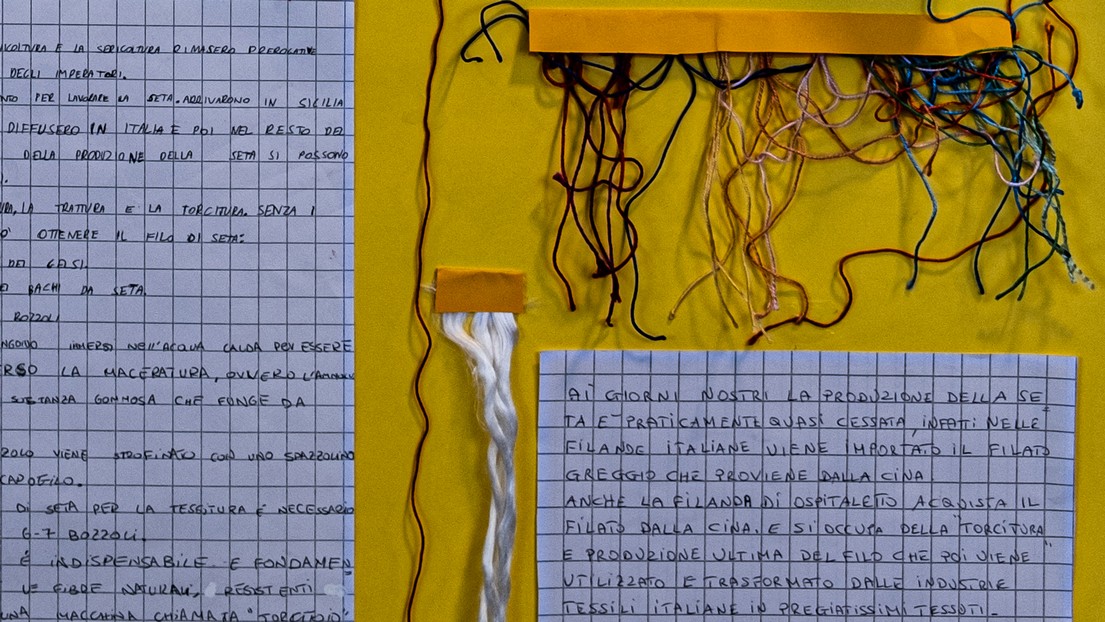 COLTURA E LA SERICOLTURA RIMASERO PREROGATIVE
DEGLI IMPERATORI.
NTO PER LAVORARE LA SETA. ARRIVARONO IN SICILIA
DIFFUSERO IN ITALIA E POI NEL RESTO DEL
DELLA PRODUZIONE DELLA SETA SI POSSONO
URA, LA TRATTURA E LA TORCITURA. SENZA I
O' OTTENERE IL FILO DI SETA:
DEI GELSI.
EI BACHI DA SETA.
BOZZOLI
NGONO IMMERSI NELL'ACQUA CALDA PER ESSERE
RSO LA MACERATURA, OVVERO
SOSTANZA GOMMOSA CHE FUNGE DA
ZOLO VIENE STROFINATO CON UNO SPAZZOLINO
CAPOFILO.
DI SETA PER LA TESSITURA È NECESSARIO
6-7 BOZZOLI.
È INDISPENSABILE E FONDAMEN
LE FIBRE NATURALI, RESISTENTI
UNA MACCHINA CHIAMATA "TORCITOIO"
AI GIORNI NOSTRI LA PRODUZIONE DELLA SE_
TA E' PRATICAMENTE QUASI CESSATA, INFATTI NELLE
FILANDE ITALIANE VIENE IMPORTATO IL FILATO
GREGGIO CHE PROVIENE DALLA CINA.
ANCHE LA FILANDA DI OSPITALETTO ACQUISTA IL
FILATO DALLA CINA. E SI OCCUPA DELLA "TORCITURA"
E PRODUZIONE ULTIMA DEL FILO CHE POI VIENE
UTILIZZATO E TRASFORMATO DALLE INDUSTRIE
TESSILI ITALIANE IN PREGIATISSIMI TESSUTI.